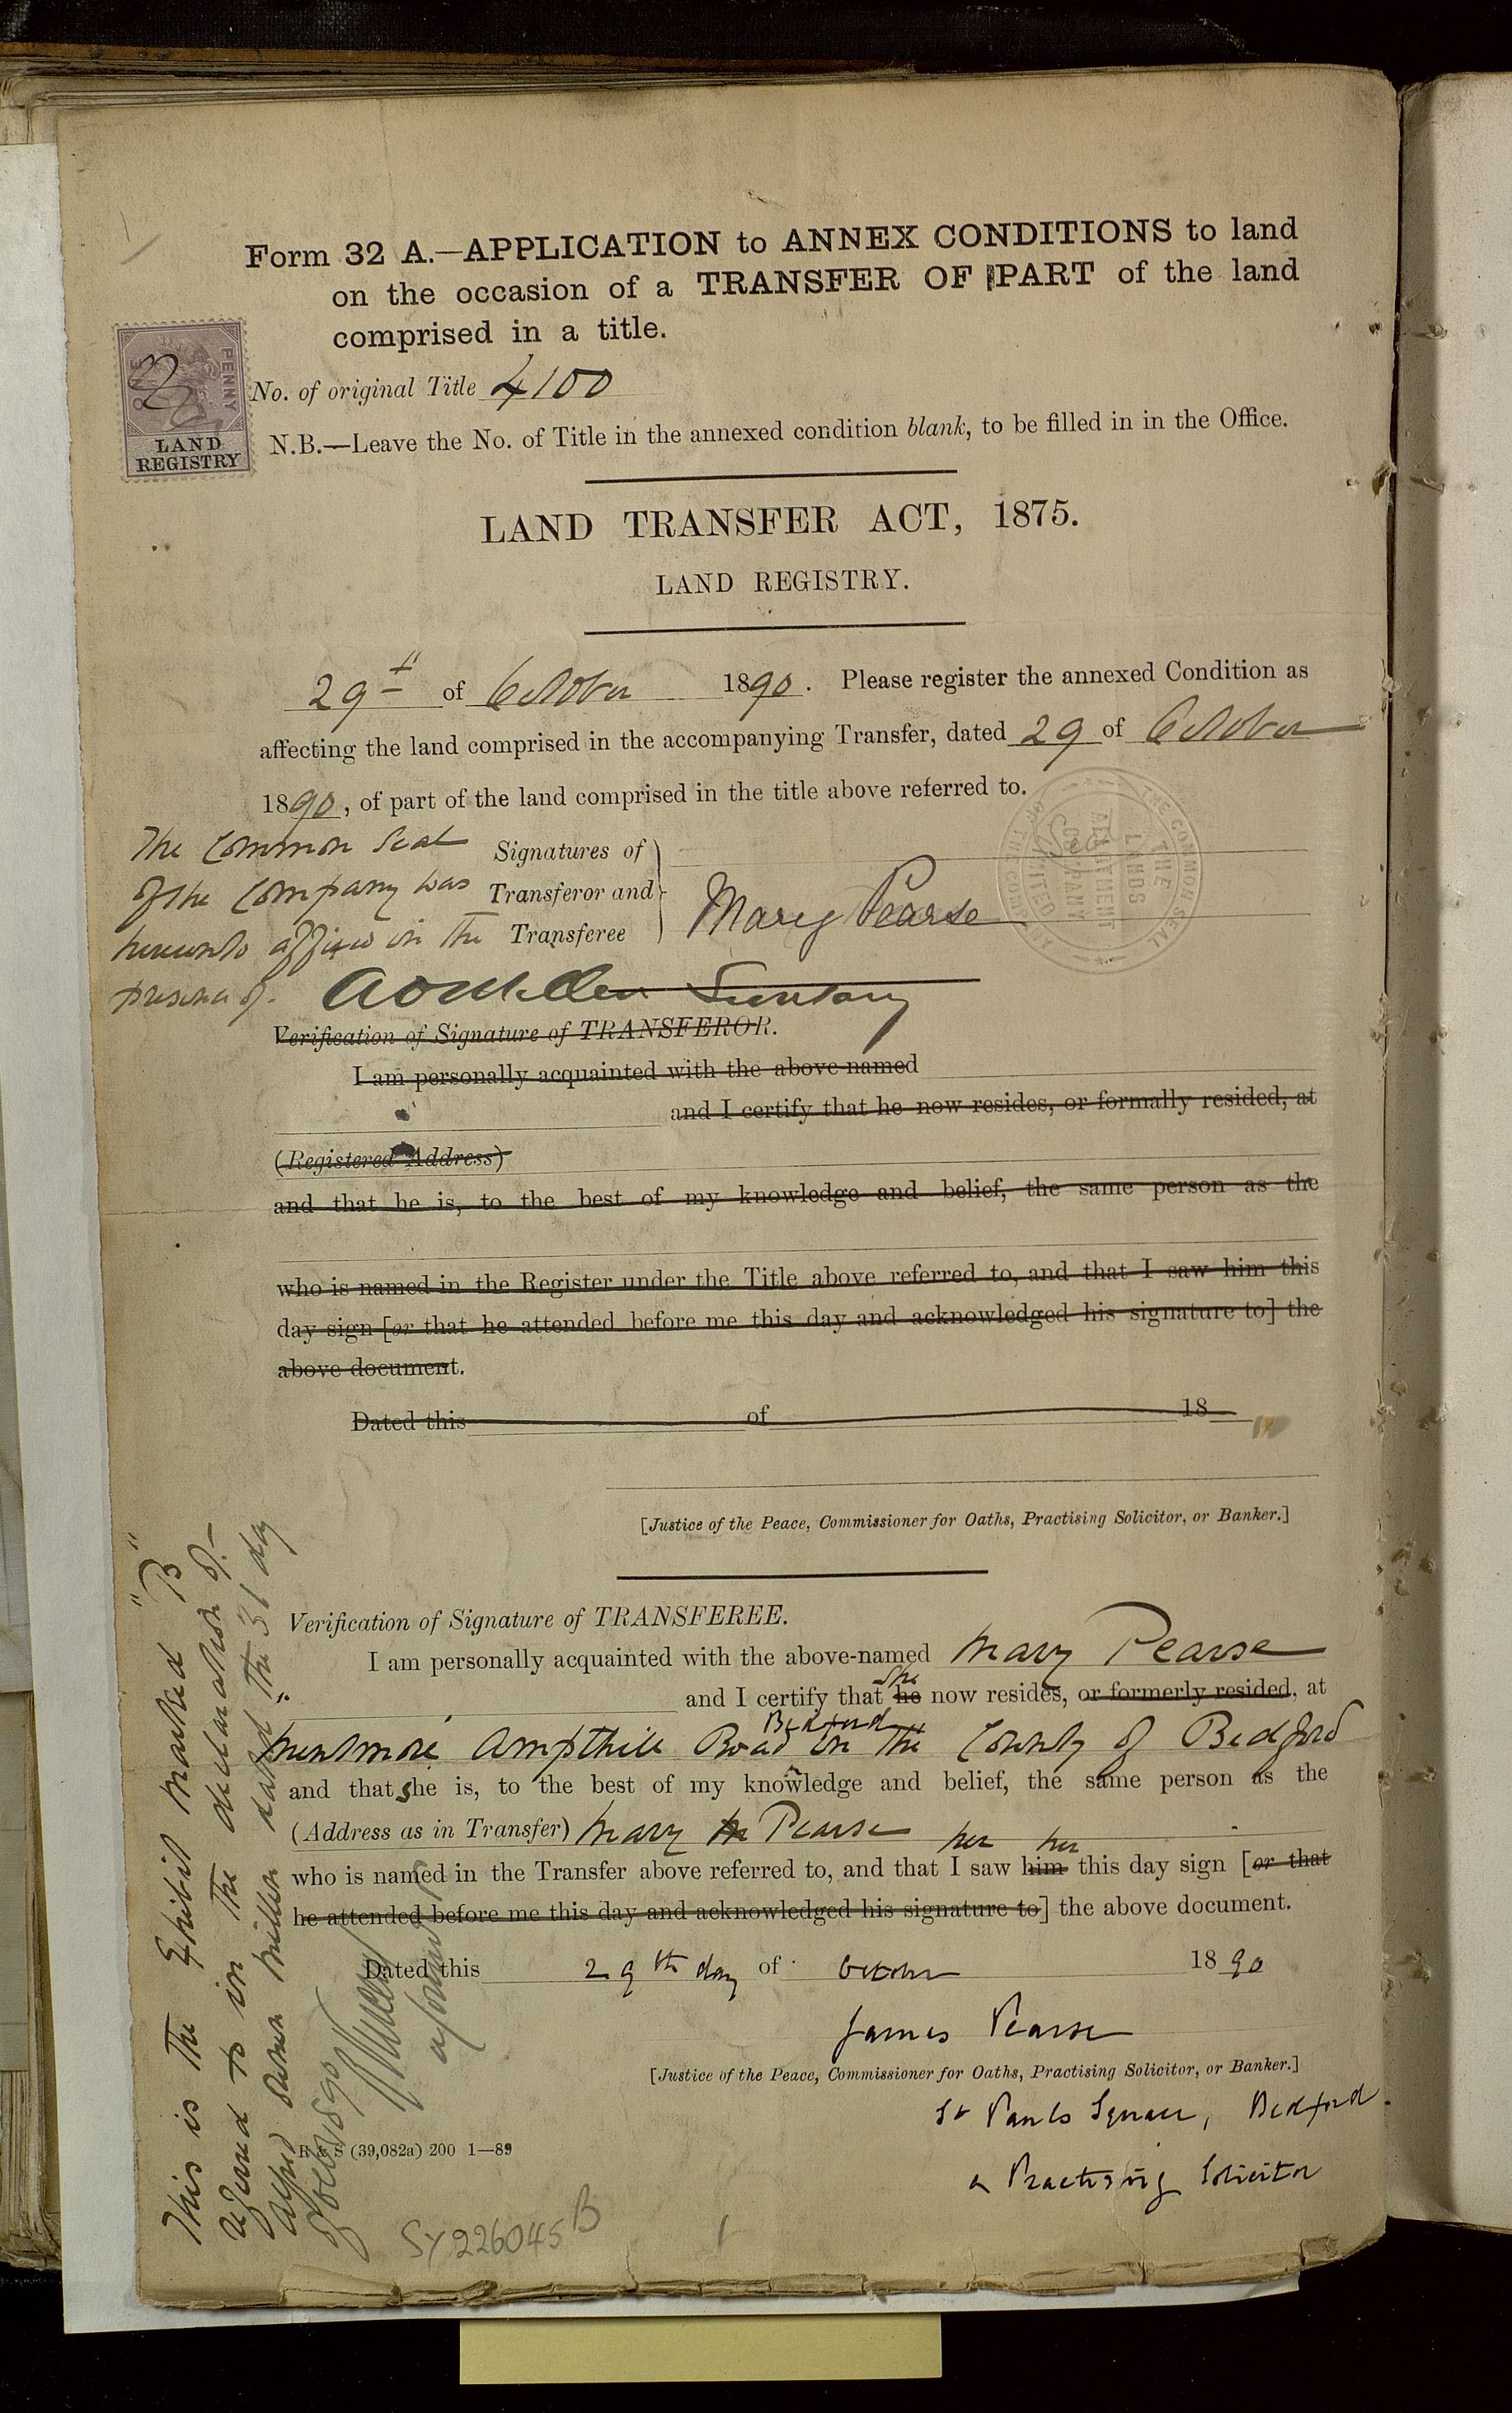 Form 32 A.—APPLICATION to ANNEX CONDITIONS to land
on the occasion of a TRANSFER OF PART of the land
comprised in a title.
ONE PENNY
LAND
REGISTRY
No. of original Title 4100
N.B.—Leave the No. of Title in the annexed condition blank, to be filled in in the Office.
LAND TRANSFER ACT, 1875.
LAND REGISTRY.
29th of October 1890. Please register the annexed Condition as
affecting the land comprised in the accompanying Transfer, dated 29 of October
1890, of part of the land comprised in the title above referred to.
The Common Seal
of the Company was
hereunto affixed in the
presence of.
Signatures of
Transferor and
Transferee
Mary Pearse
Seal
THE COMMON SEAL
THE LANDS ALLOTMENT COMPANY LIMITED
Secretary
Verification of Signature of TRANSFEROR.
I am personally acquainted with the above-named
and I certify that he now resides, or formally resided, at
(Registered Address)
and that he is, to the best of my knowledge and belief, the same person as the
who is named in the Register under the Title above referred to, and that I saw him this
day sign [or that he attended before me this day and acknowledged his signature to] the
above document.
Dated this of 18
[Justice of the Peace, Commissioner for Oaths, Practising Solicitor, or Banker.]
Verification of Signature of TRANSFEREE.
I am personally acquainted with the above-named Mary Pearse
and I certify that he she now resides, or formerly resided, at
Mentmore Ampthill Road Bedford in the County of Bedford
and that she is, to the best of my knowledge and belief, the same person as the
(Address as in Transfer) Mary Pearse
who is named in the Transfer above referred to, and that I saw him her her this day sign [or that
he attended before me this day and acknowledged his signature to] the above document.
Dated this 29th day of October 1890
James Pearse
[Justice of the Peace, Commissioner for Oaths, Practising Solicitor, or Banker.]
St Pauls Square, Bedford.
a Practising Solicitor
B & S (39,082a) 200 1—89
SY226045 B
This is the Exhibit marked "B"
referred to in the declaration of
Alfred Millen dated the 31 day
of Oct 1890